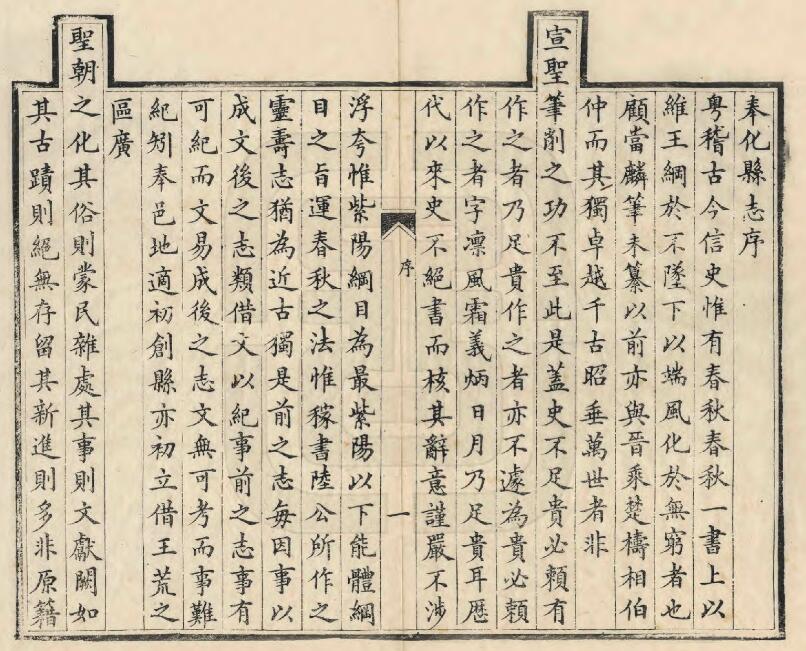 奉化縣志序
粤稽古今信史惟有春秋春秋一書上以
維王綱於不墜下以端風化於無窮者也
顧當麟筆未纂以前亦與晉乘楚檮相伯
仲而其獨卓越千古昭垂萬世者非
宣聖筆削之功不至此是蓋史不足貴必賴有
作之者乃足貴作之者亦不遽為貴必賴
作之者字凛風霜義炳日月乃足貴耳歷
代以來史不絕書而核其辭意謹嚴不涉
序
一
浮夸惟紫陽綱目為最紫陽以下能體綱
目之旨運春秋之法惟稼書陸公所作之
靈壽志猶為近古獨是前之志每因事以
成文後之志類借文以紀事前之志事有
可紀而文易成後之志文無可考而事難
紀矧奉邑地適初創縣亦初立借王荒之
區廣
聖朝之化其俗則蒙民雜處其事則文獻闕如
其古蹟則絕無存留其新進則多非原籍